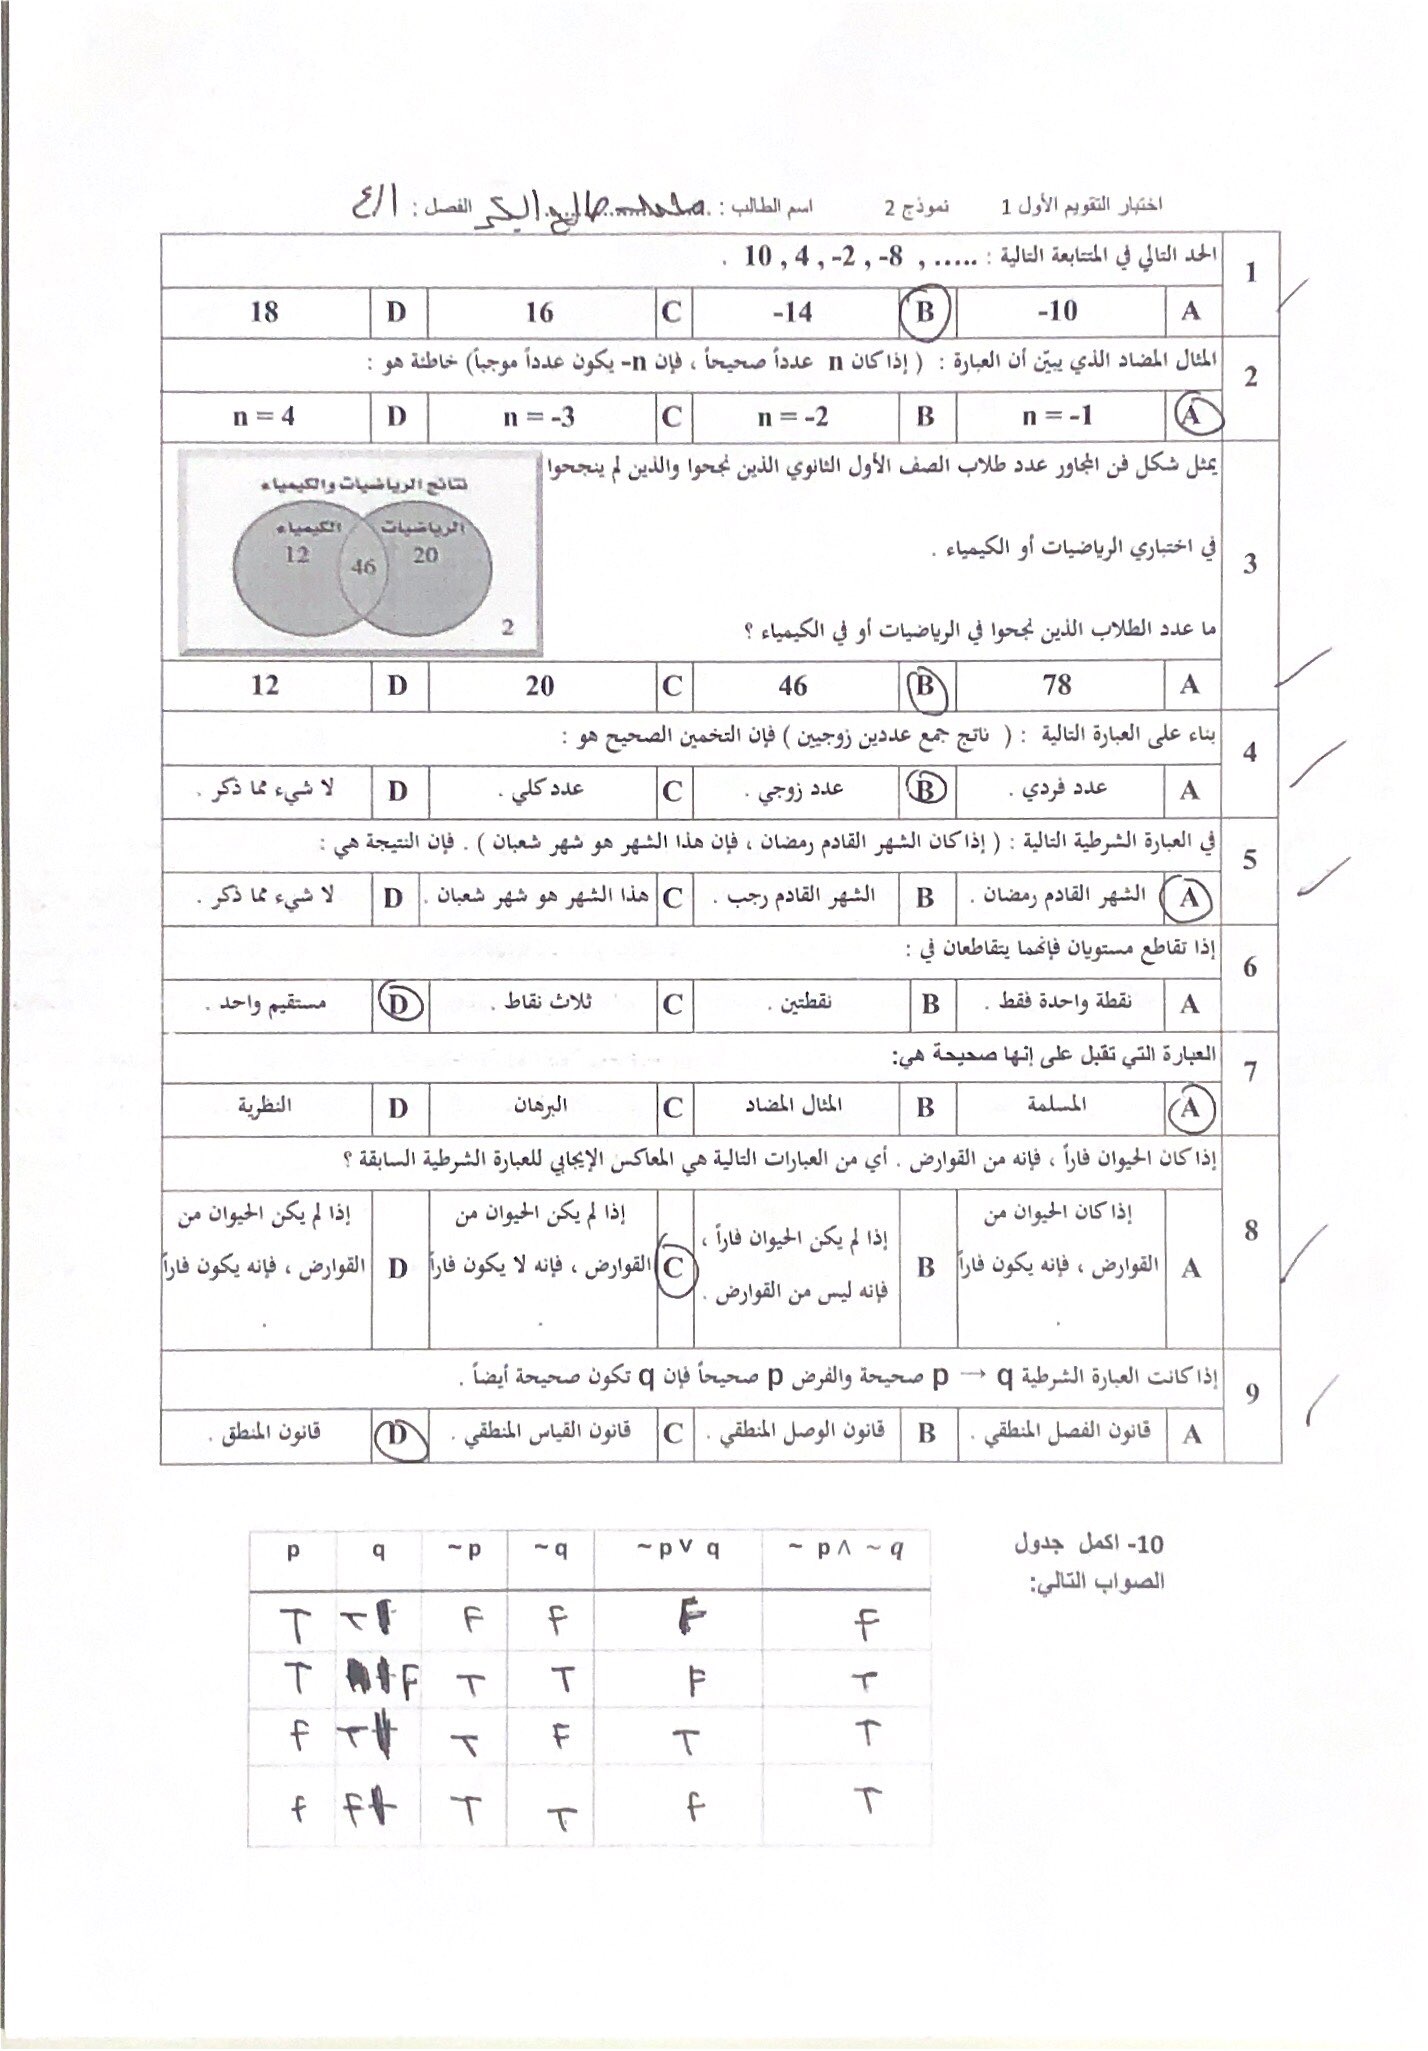 اختبار التقويم الأول 1 نموذج 2 اسم الطالب : محمد صالح البكر الفصل : ١/٤
1 الحد التالي في المتتابعة التالية : ..... , 10 , 4 , -2 , -8 .
A -10 B -14 C 16 D 18
2 المثال المضاد الذي يبيّن أن العبارة : ( إذا كان n عدداً صحيحاً ، فإن n- يكون عدداً موجباً) خاطئة هو :
A n = -1 B n = -2 C n = -3 D n = 4
3 يمثل شكل فن المجاور عدد طلاب الصف الأول الثانوي الذين نجحوا والذين لم ينجحوا
في اختباري الرياضيات أو الكيمياء .
ما عدد الطلاب الذين نجحوا في الرياضيات أو في الكيمياء ؟
نتائج الرياضيات والكيمياء
الرياضيات الكيمياء
20 46 12
2
A 78 B 46 C 20 D 12
4 بناء على العبارة التالية : ( ناتج جمع عددين زوجيين ) فإن التخمين الصحيح هو :
A عدد فردي . B عدد زوجي . C عدد كلي . D لا شيء مما ذكر .
5 في العبارة الشرطية التالية : ( إذا كان الشهر القادم رمضان ، فإن هذا الشهر هو شهر شعبان ) . فإن النتيجة هي :
A الشهر القادم رمضان . B الشهر القادم رجب . C هذا الشهر هو شهر شعبان . D لا شيء مما ذكر .
6 إذا تقاطع مستويان فإنهما يتقاطعان في :
A نقطة واحدة فقط . B نقطتين . C ثلاث نقاط . D مستقيم واحد .
7 العبارة التي تقبل على إنها صحيحة هي:
A المسلمة B المثال المضاد C البرهان D النظرية
8 إذا كان الحيوان فاراً ، فإنه من القوارض . أي من العبارات التالية هي المعاكس الإيجابي للعبارة الشرطية السابقة ؟
A إذا كان الحيوان من القوارض ، فإنه يكون فاراً . B إذا لم يكن الحيوان فاراً ، فإنه ليس من القوارض . C إذا لم يكن الحيوان من القوارض ، فإنه لا يكون فاراً . D إذا لم يكن الحيوان من القوارض ، فإنه يكون فاراً .
9 إذا كانت العبارة الشرطية p → q صحيحة والفرض p صحيحاً فإن q تكون صحيحة أيضاً .
A قانون الفصل المنطقي . B قانون الوصل المنطقي . C قانون القياس المنطقي . D قانون المنطق .
10- اكمل جدول
الصواب التالي:
p q ~p ~q ~p ∨ q ~ p ∧ ~ q
T T F F F F
T F T T F T
F T T F T T
F F T T F T